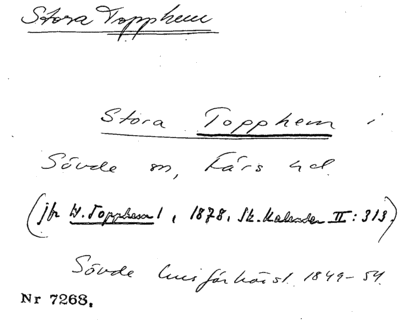 Stora Topphem
Stora Topphem i
Sövde sn, Färs hd.
(jfr W. Topphem 1, 1878, Sk. Kalender II: 313)
Sövde husförhörsl. 1849-54.
Nr 7268.